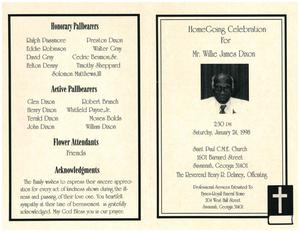 Honorary Pallbearers
Ralph Passmore Preston Dixon
Eddie Robinson Walter Gray
David Gray Cedric Benton, Sr.
Felton Denny Timothy Sheppard
Solomon Matthews, III
Active Pallbearers
Glen Dixon Robert Branch
Henry Dixon Whitfield Payne, Jr.
Terrald Dixon Moses Bolds
John Dixon William Dixon
Flower Attendants
Friends
Acknowledgments
The family wishes to express their sincere appreciation
for every act of kindness shown during the illness
and passing of their love one. Your heartfelt
sympathy at this time of bereavement, is gratefully
acknowledged. May God Bless you is our prayer.
HomeGoing Celebration
For
Mr. Willie James Dixon
2:30 PM
Saturday, January 24, 1998
Saint Paul C.M.E. Church
1601 Barnard Street
Savannah, Georgia 31401
The Reverend Henry R. Delaney, Officiating
Professional Services Entrusted To
Bynes-Royal Funeral Home
204 West Hall Street
Savannah, Georgia 31401